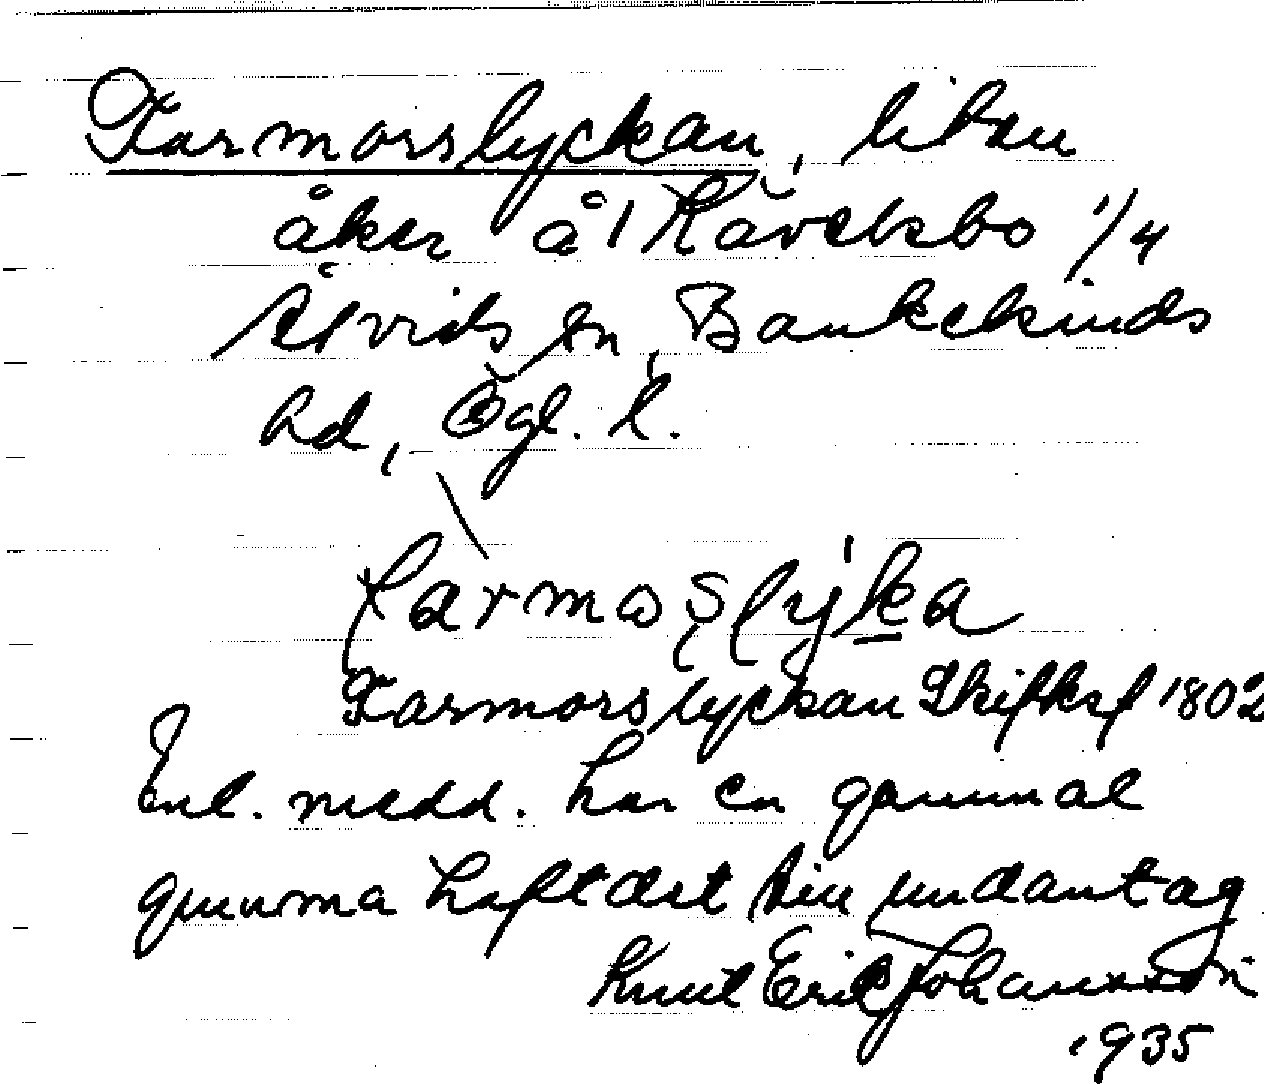 Farmorslyckan, liten
åker å 1 Kävelsbo 1/4
Åtvids sn, Bankekinds
hd, Ögl. l.
farmoslyka
Farmorslyckan Skifksf 1802
Enl. medd. har en gammal
gumma haft det till undantag
Knut Erik Johansson
1935